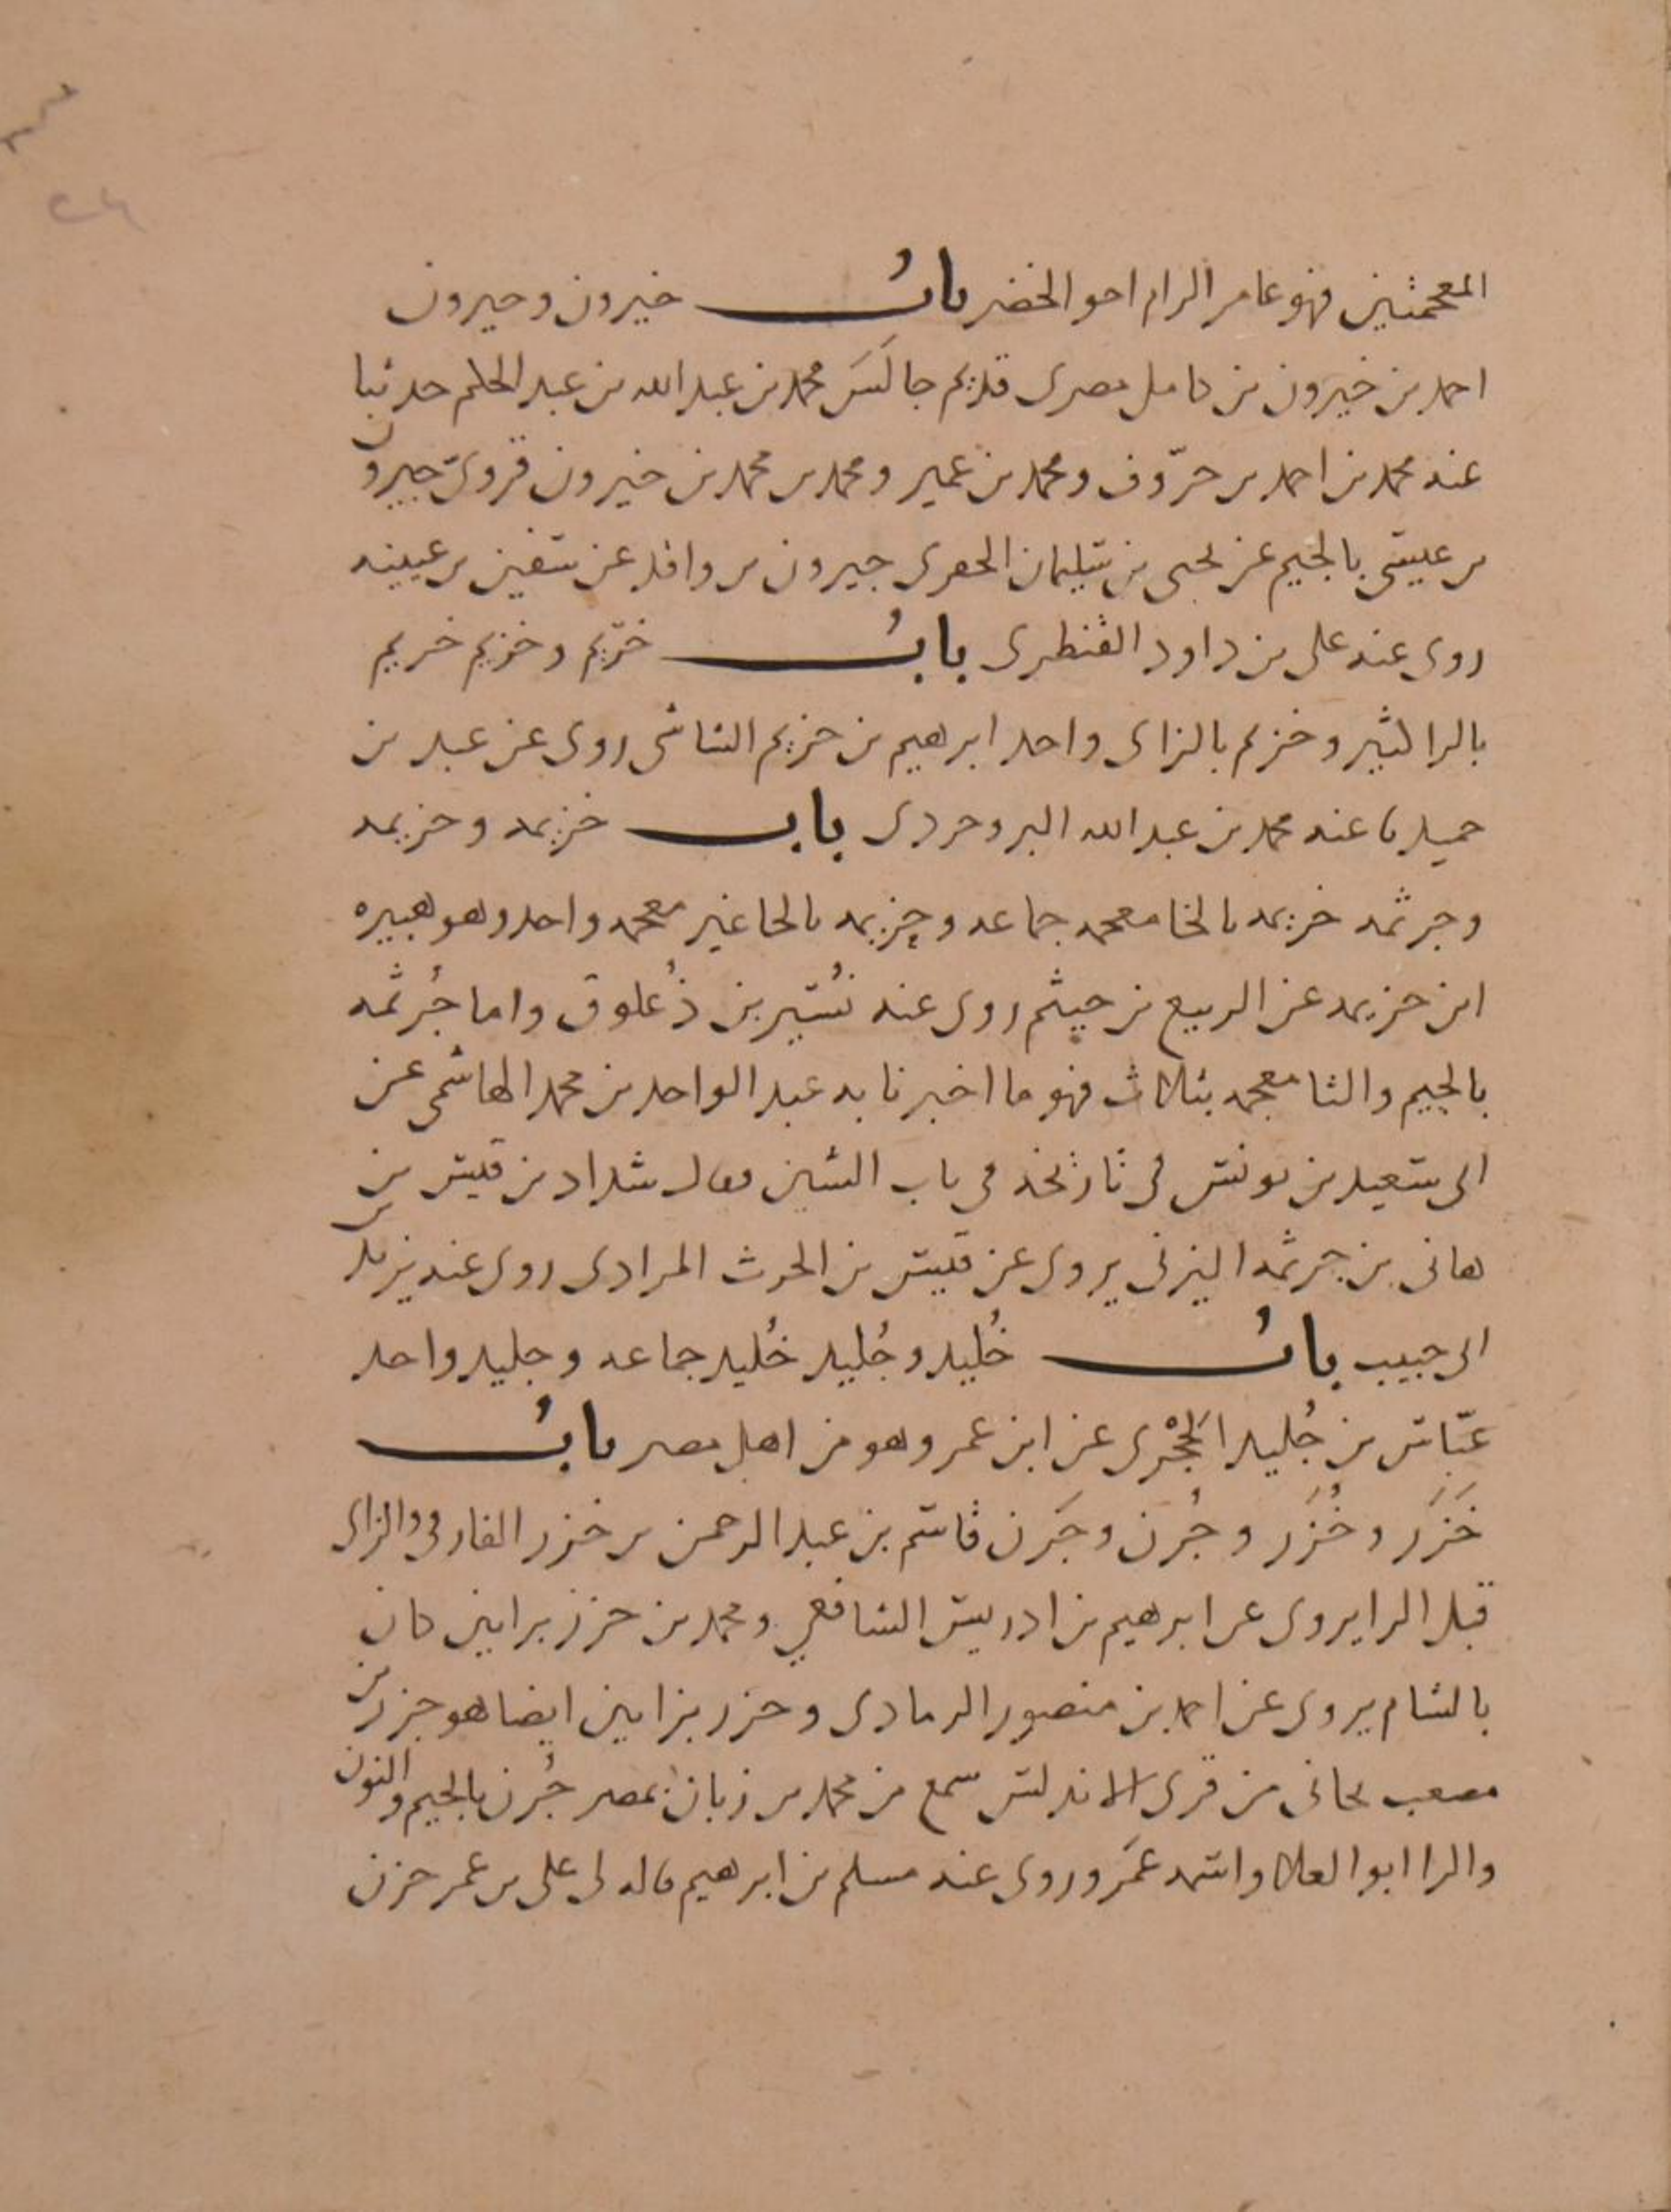 ٢٤
المعجمتين فهو عامر الرام اخو الخضر باب خيرون وجيرون
احمد بن خيرون بن كامل مصرى قديم جالس محمد بن عبد الله بن عبد الحكم حدثنا
عنه محمد بن احمد بن حروف ومحمد بن عمير ومحمد بن محمد بن خيرون قروى جيرون
بن عيسى بالجيم عن يحيى بن سليمان الحفرى جيرون بن واقد عن سفين بن عيينه
روى عنه على بن داود القنطرى باب خريم وخزيم خريم
بالرا كثير وخزيم بالزاى واحد ابرهيم بن خزيم الشاشى روى عن عبد بن
حميد نا عنه محمد بن عبد الله البروجردى باب خزيمه وحزيمه
وجرثمه خزيمه بالخا معجمه جماعه وحزيمه بالحا غير معجمه واحد وهو هبيره
ابن حزيمه عن الربيع بن خيثم روى عنه نُسَير بن ذُعلوق واما جُرثمه
بالجيم والثا معجمه بثلاث فهو ما اخبرنا به عبد الواحد بن محمد الهاشمى عن
ابى سعيد بن يونس فى تاريخه فى باب الشين فقال شداد بن قيس بن
هانى بن جرثمه اليزنى يروى عن قيس بن الحرث المرادى روى عنه يزيد بن
ابى حبيب باب خُليد وجُليد خُليد جماعه وجليد واحد
عبّاس بن جُليد الحَجْرى عن ابن عمر وهو من اهل مصر باب
خَزَر وخُزَر وجُرن وجَرن قاسم بن عبد الرحمن بن خزر الفارقى والزاى
قبل الرا يروى عن ابرهيم بن ادريس الشافعي ومحمد بن خزز بزايين كان
بالشام يروى عن احمد بن منصور الرمادى وخزز بزايين ايضا هو خزز بن
مصعب بجانى من قرى الاندلس سمع من محمد بن زبان بمصر جُرن بالجيم والنون
والرا ابو العلا واسمه عمَرو روى عنه مسلم بن ابرهيم قاله لى على بن عمر حزن